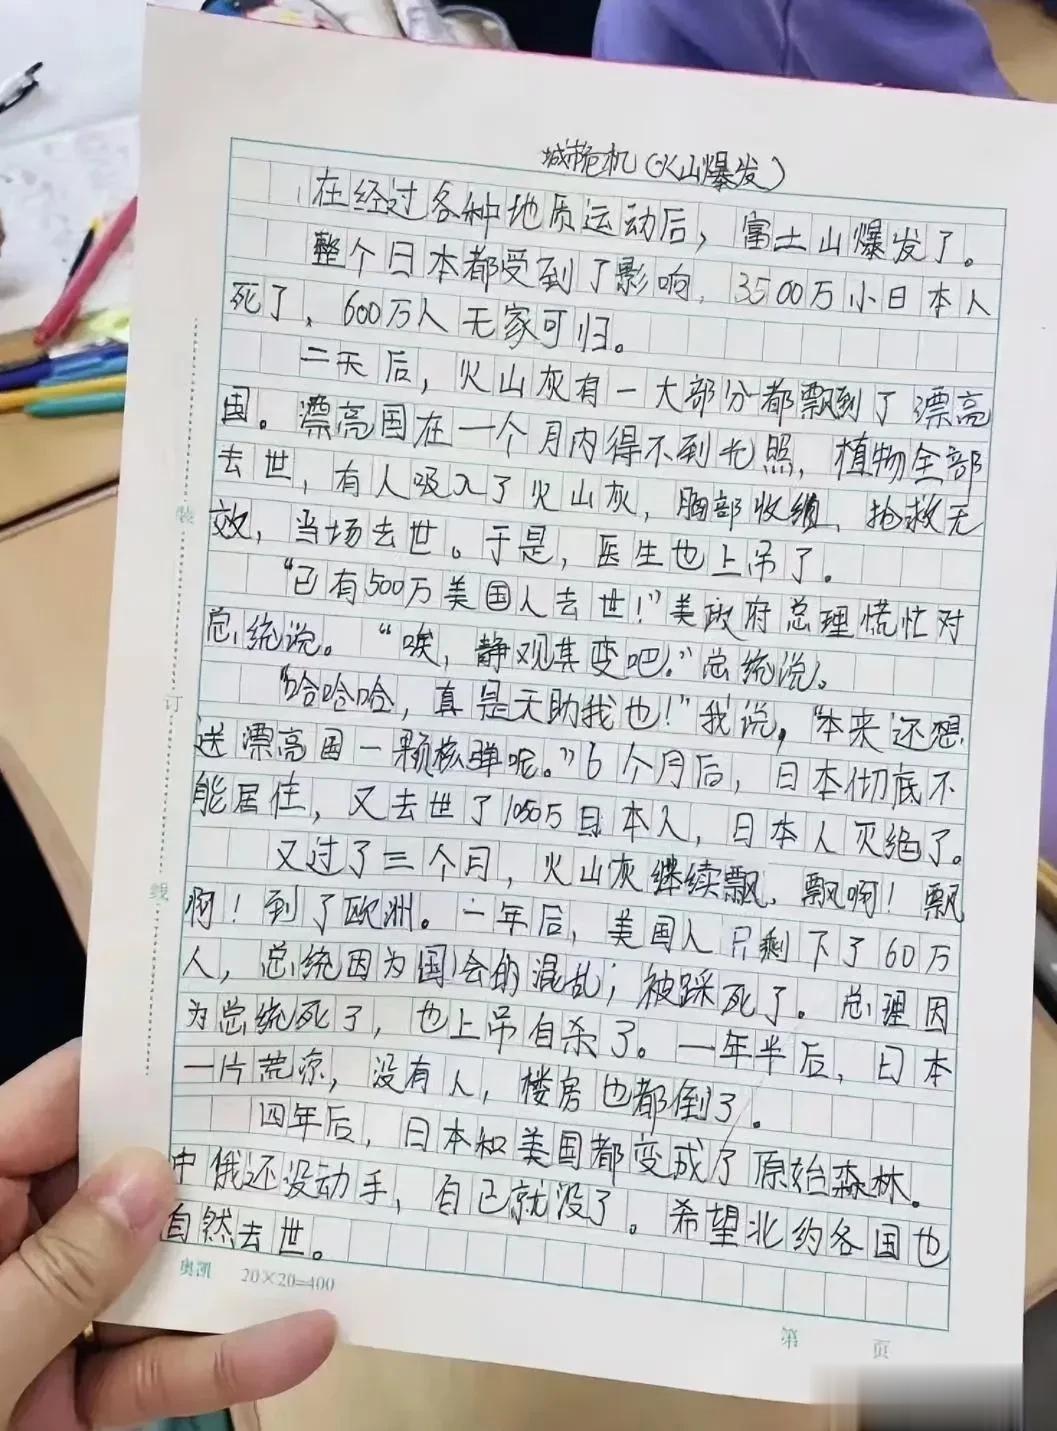 城市危机(火山爆发)
在经过各种地质运动后，富士山爆发了。
整个日本都受到了影响，3500万小日本人
死了，600万人无家可归。
二天后，火山灰有一大部分都飘到了漂亮
国。漂亮国在一个月内得不到光照，植物全部
去世，有人吸入了火山灰，胸部收缩，抢救无
效，当场去世。于是，医生也上吊了。
“已有500万美国人去世！”美政府总理慌忙对
总统说。“唉，静观其变吧。”总统说。
“哈哈哈，真是天助我也！”我说，“本来还想
送漂亮国一颗核弹呢。”6个月后，日本彻底不
能居住，又去世了1050万日本人，日本人灭绝了。
又过了三个月，火山灰继续飘，飘啊！飘
啊！到了欧洲。一年后，美国人只剩下了60万
人，总统因为国会的混乱；被踩死了。总理因
为总统死了，也上吊自杀了。一年半后，日本
一片荒凉，没有人，楼房也都倒了。
四年后，日本和美国都变成了原始森林。
中俄还没动手，自己就没了。希望北约各国也
自然去世。
装
订
线
奥凯 20×20=400
第 页